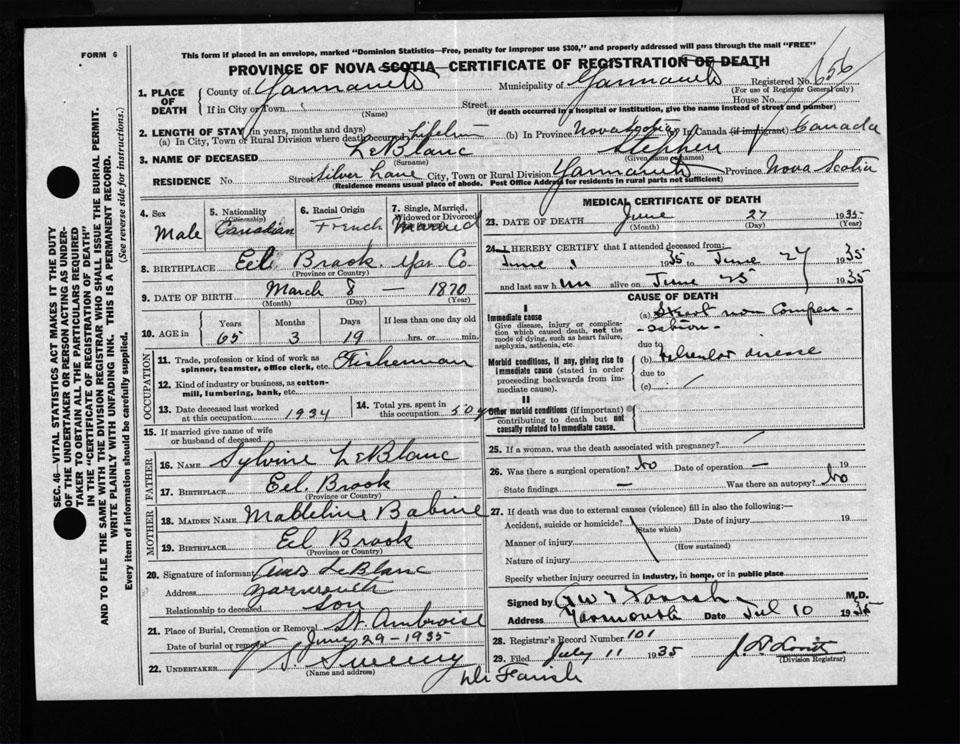 FORM 6
This form if placed in an envelope, marked "Dominion Statistics—Free, penalty for improper use $300," and properly addressed will pass through the mail "FREE"
PROVINCE OF NOVA SCOTIA—CERTIFICATE OF REGISTRATION OF DEATH
Registered No. 656
(For use of Registrar General only)
1. PLACE OF DEATH
County of Yarmouth
(Name)
Municipality of Yarmouth
If in City or Town
Street
House No.
(If death occurred in a hospital or institution, give the name instead of street and number)
2. LENGTH OF STAY (in years, months and days)
(a) In City, Town or Rural Division where death occurred Lifetime (b) In Province Nova Scotia (c) In Canada (if immigrant) Canada
3. NAME OF DECEASED LeBlanc Stephen
(Surname) (Given name or names)
RESIDENCE No. Street Silver Lane City, Town or Rural Division Yarmouth Province Nova Scotia
(Residence means usual place of abode. Post Office Address for residents in rural parts not sufficient)
4. Sex
Male
5. Nationality
(Citizenship)
Canadian
6. Racial Origin
French
7. Single, Married, Widowed or Divorced
Married
8. BIRTHPLACE Eel Brook Yar. Co.
(Province or Country)
9. DATE OF BIRTH March 8 — 1870
(Month) (Day) (Year)
10. AGE in
Years Months Days If less than one day old
65 3 19 hrs. or min.
OCCUPATION
11. Trade, profession or kind of work as spinner, teamster, office clerk, etc. Fisherman
12. Kind of industry or business, as cotton-mill, lumbering, bank, etc.
13. Date deceased last worked at this occupation 1934
14. Total yrs. spent in this occupation 50 y
15. If married give name of wife or husband of deceased
FATHER
16. NAME Sylvine LeBlanc
17. BIRTHPLACE Eel Brook
(Province or Country)
MOTHER
18. MAIDEN NAME Madeline Babine
19. BIRTHPLACE Eel Brook
(Province or Country)
20. Signature of informant LeBlanc
Address Yarmouth
Relationship to deceased Son
21. Place of Burial, Cremation or Removal St. Ambroise
Date of burial or removal June 29 - 1935
22. UNDERTAKER S. Sweeny
(Name and address)
Dr Farish
MEDICAL CERTIFICATE OF DEATH
23. DATE OF DEATH June 27 1935
(Month) (Day) (Year)
24. I HEREBY CERTIFY that I attended deceased from:
June 1 1935 to June 27 1935
and last saw him alive on June 25 1935
CAUSE OF DEATH
I
Immediate cause
Give disease, injury or complication which caused death, not the mode of dying, such as heart failure, asphyxia, asthenia, etc.
(a) Heart non Compen-
sation
due to
Morbid conditions, if any, giving rise to immediate cause (stated in order proceeding backwards from immediate cause).
(b) valvular disease
due to
(c)
II
Other morbid conditions (if important) contributing to death but not causally related to immediate cause.
25. If a woman, was the death associated with pregnancy?
26. Was there a surgical operation? No Date of operation — 19
State findings — Was there an autopsy? No
27. If death was due to external causes (violence) fill in also the following:—
Accident, suicide or homicide? Date of injury 19
(State which)
Manner of injury
(How sustained)
Nature of injury
Specify whether injury occurred in industry, in home, or in public place
Signed by Geo W T Farish M.D.
Address Yarmouth Date Jul 10 1935
28. Registrar's Record Number 101
29. Filed July 11 1935
(Division Registrar)
SEC. 46—VITAL STATISTICS ACT MAKES IT THE DUTY
OF THE UNDERTAKER OR PERSON ACTING AS UNDER-
TAKER TO OBTAIN ALL THE PARTICULARS REQUIRED
IN THE "CERTIFICATE OF REGISTRATION OF DEATH"
AND TO FILE THE SAME WITH THE DIVISION REGISTRAR WHO SHALL ISSUE THE BURIAL PERMIT.
WRITE PLAINLY WITH UNFADING INK. THIS IS A PERMANENT RECORD.
Every item of information should be carefully supplied. (See reverse side for instructions.)